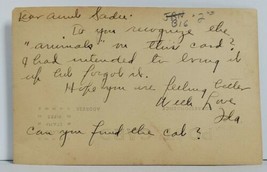 Dear Aunt Sadie -
Do you recognize the
"animals" on this card?
I had intended to bring it
up but forgot it.
Hope you are feeling better
With Love
Ida
Can you find the cat?